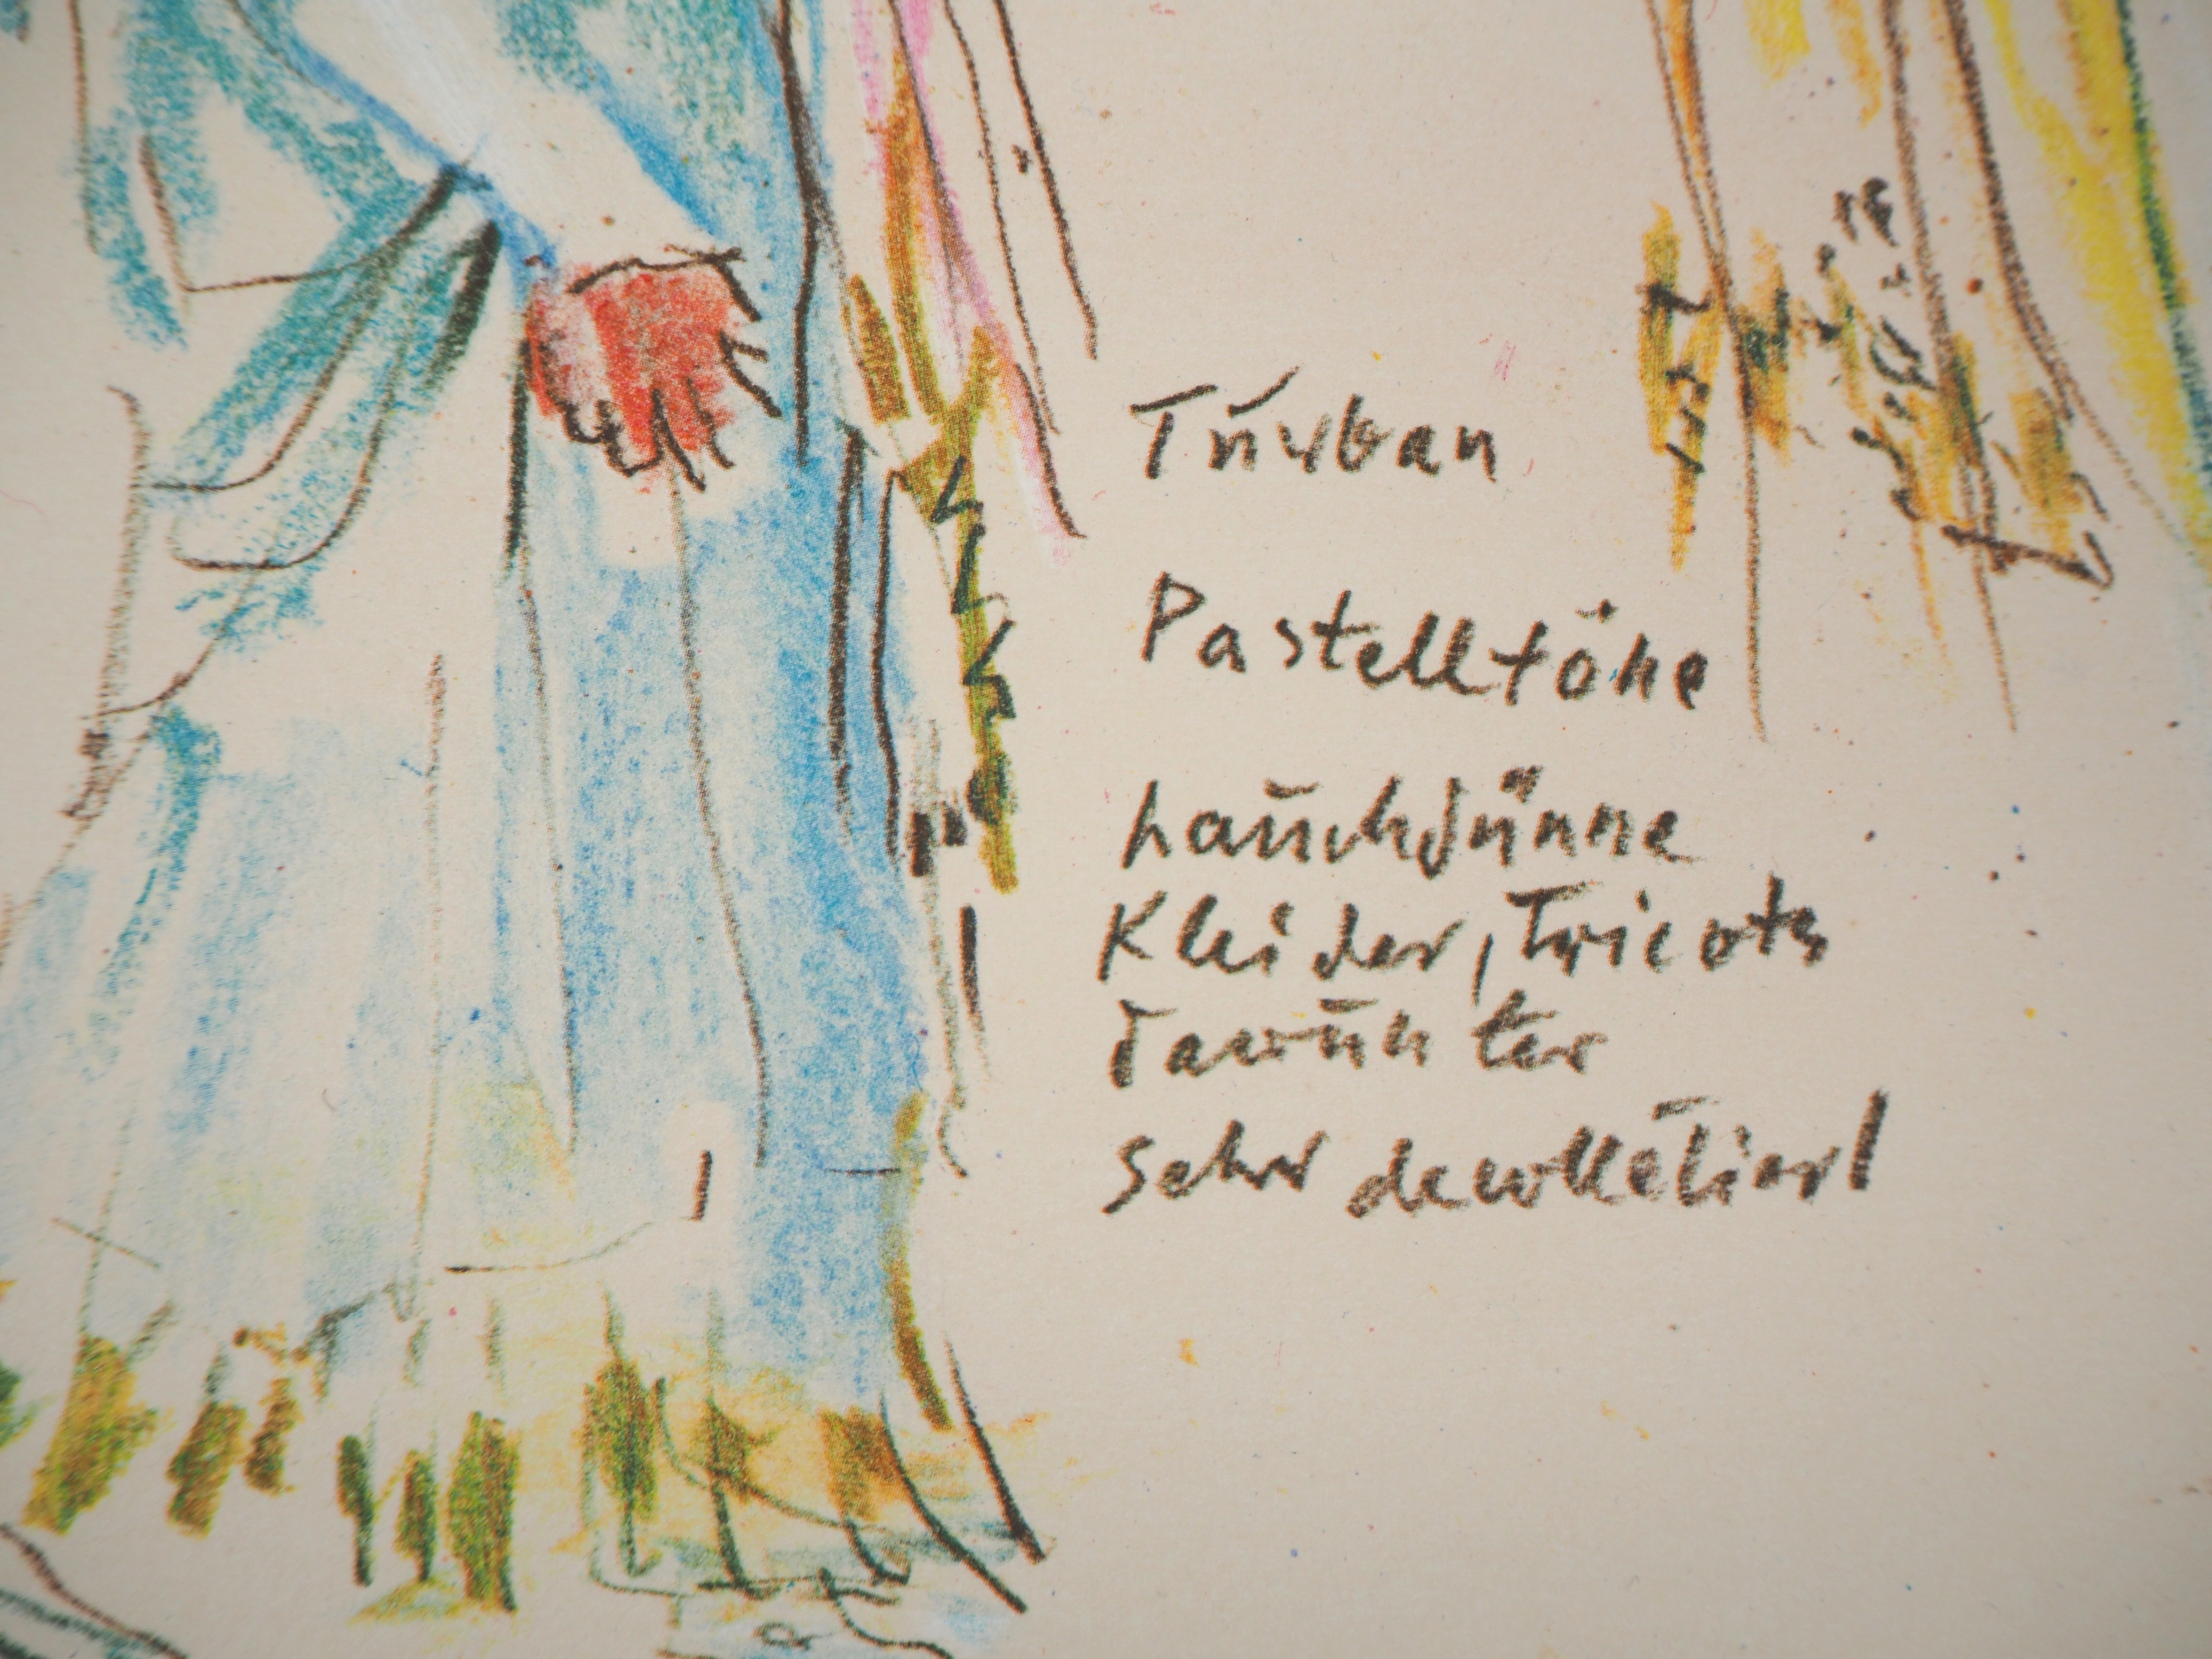 Turban
Pastelltöne
hauchdünne
Kleider, Tricots
darunter
sehr decolletiert